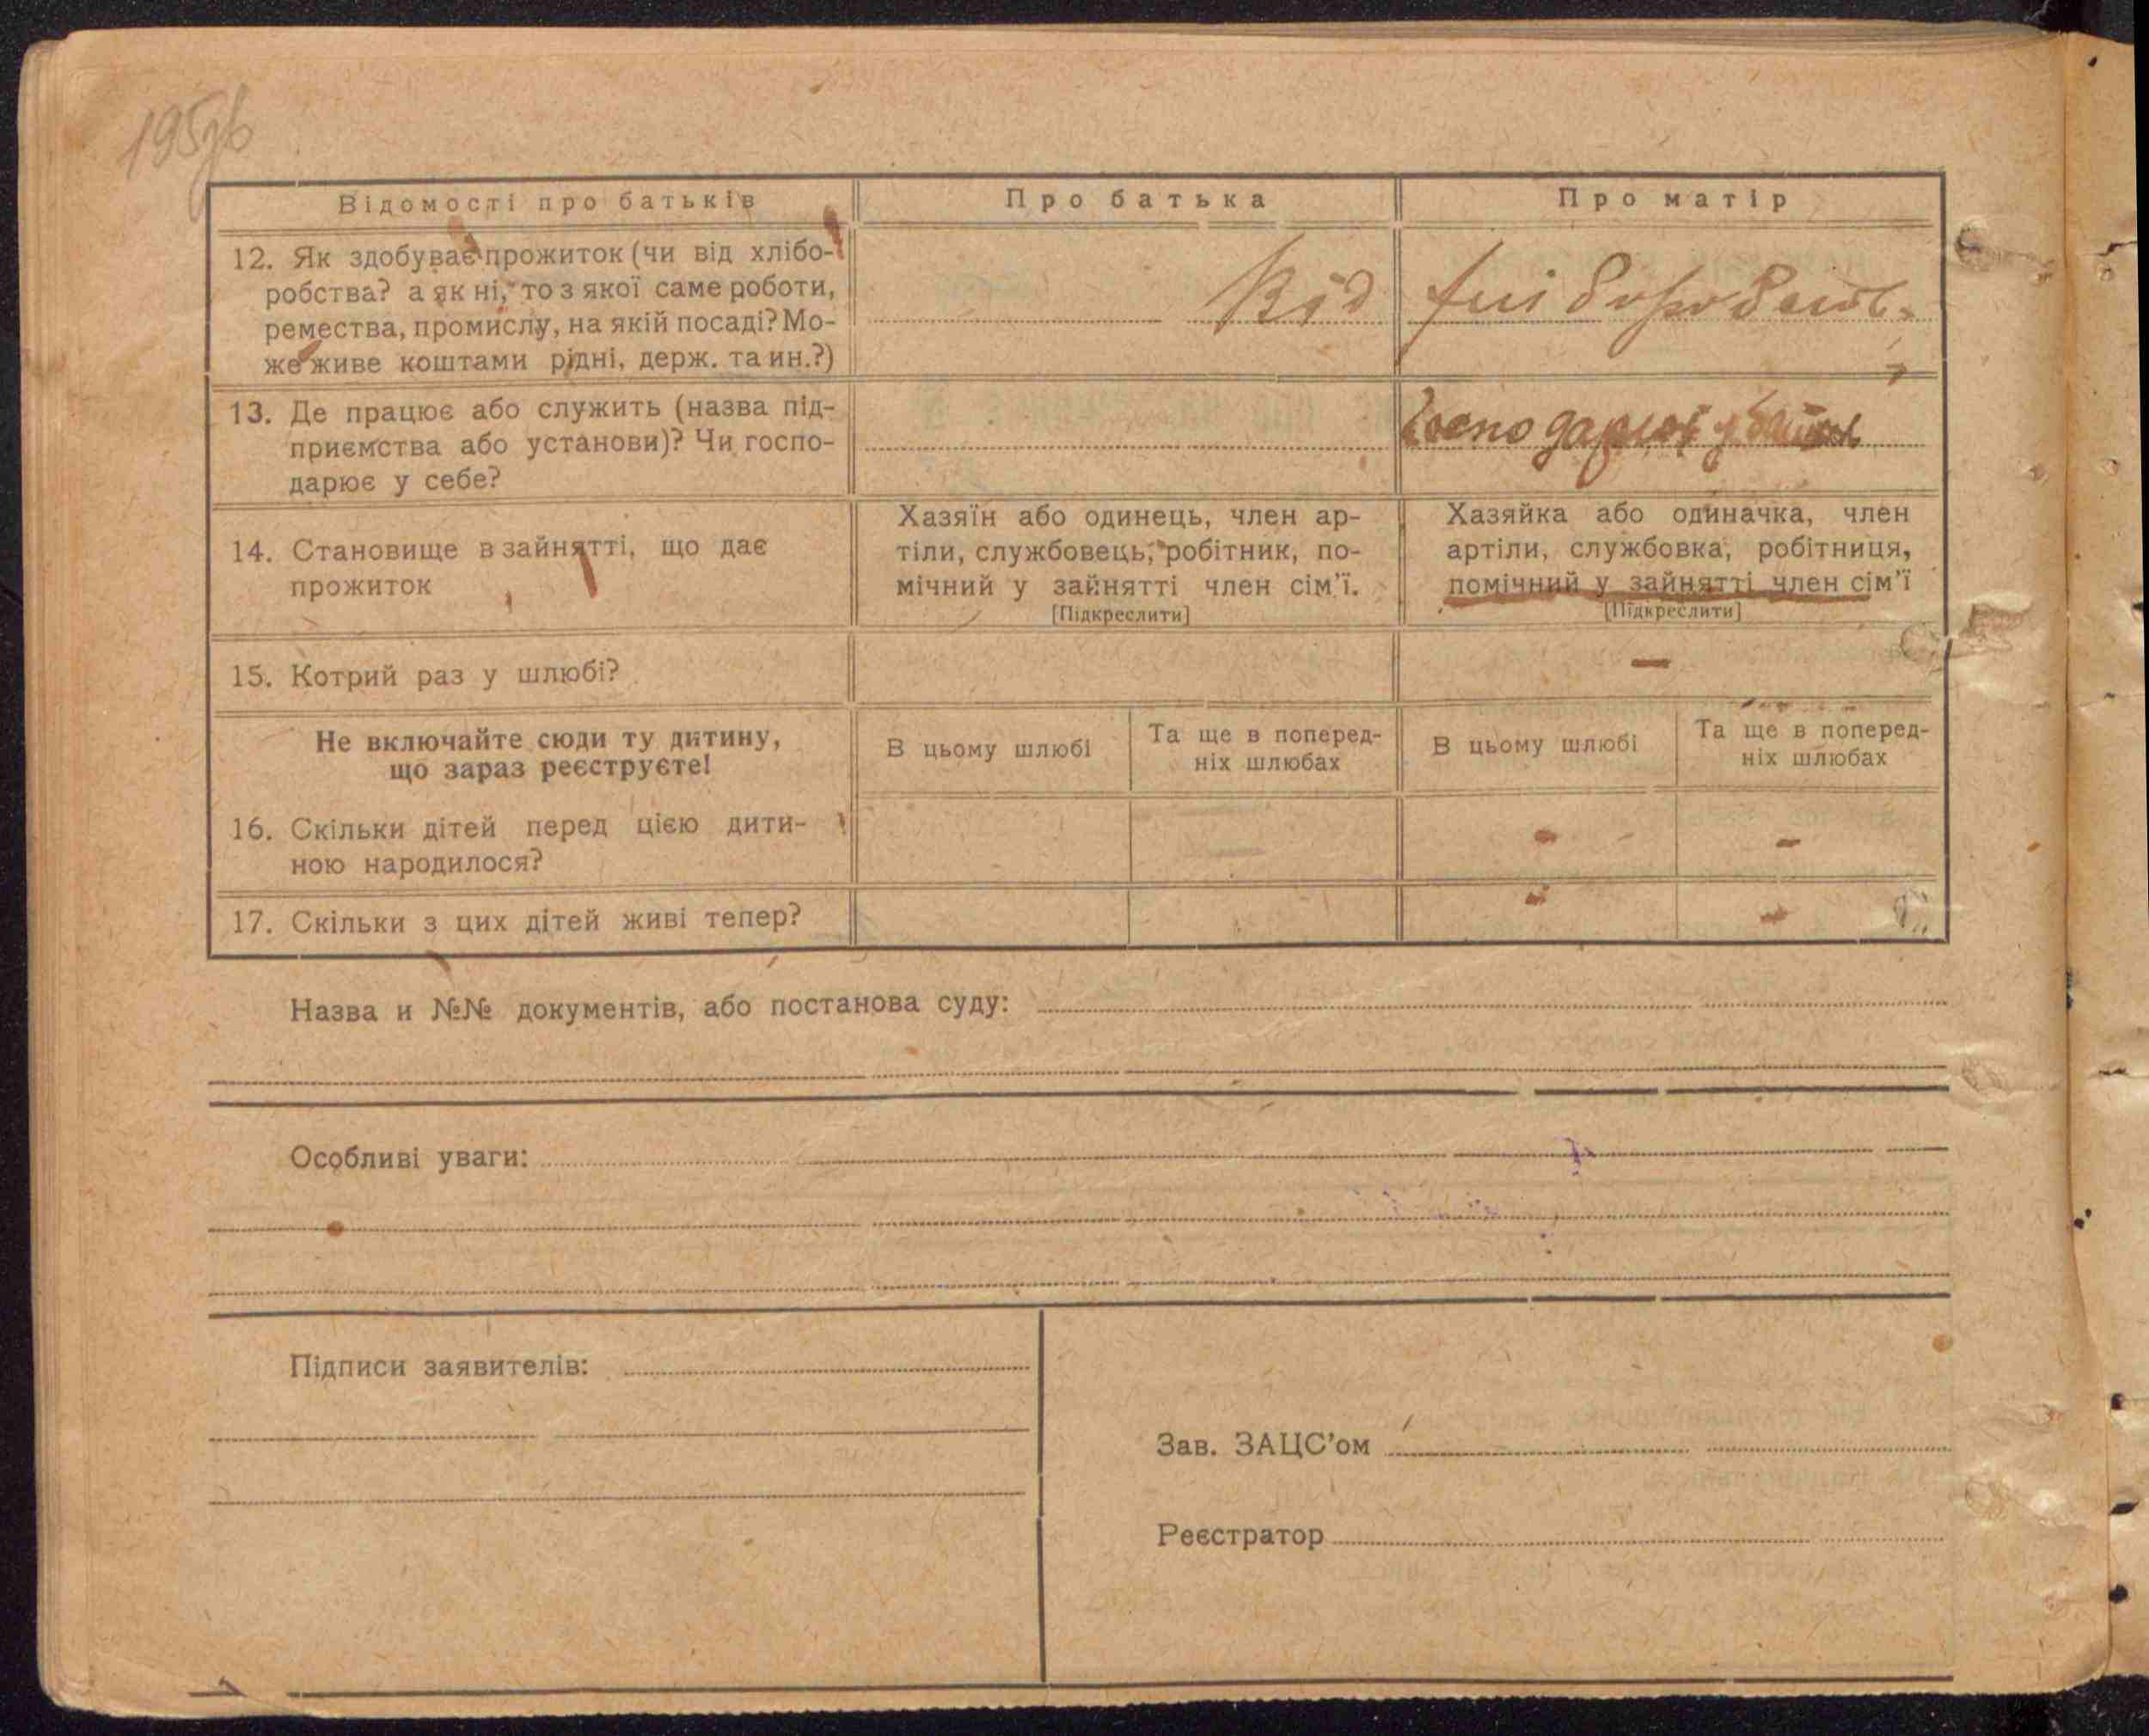 195зв
Відомості про батьків
Про батька
Про матір
12. Як здобуває прожиток (чи від хлібо-
робства? а як ні, то з якої саме роботи,
ремества, промислу, на якій посаді? Мо-
же живе коштами рідні, держ. та ин.?)
Від хліборобств.
13. Де працює або служить (назва під-
приємства або установи)? Чи госпо-
дарює у себе?
Господарює у
14. Становище в зайнятті, що дає
прожиток
Хазяїн або одинець, член ар-
тіли, службовець, робітник, по-
мічний у зайнятті член сім'ї.
[Підкреслити]
Хазяйка або одиначка, член
артіли, службовка, робітниця,
помічний у зайнятті член сім'ї
[Підкреслити]
15. Котрий раз у шлюбі?
—
Не включайте сюди ту дитину,
що зараз реєструєте!
В цьому шлюбі
Та ще в поперед-
ніх шлюбах
В цьому шлюбі
Та ще в поперед-
ніх шлюбах
16. Скільки дітей перед цією дити-
ною народилося?
- -
17. Скільки з цих дітей живі тепер?
- -
Назва и №№ документів, або постанова суду:
Особливі уваги:
Підписи заявителів:
Зав. ЗАЦС'ом
Реєстратор